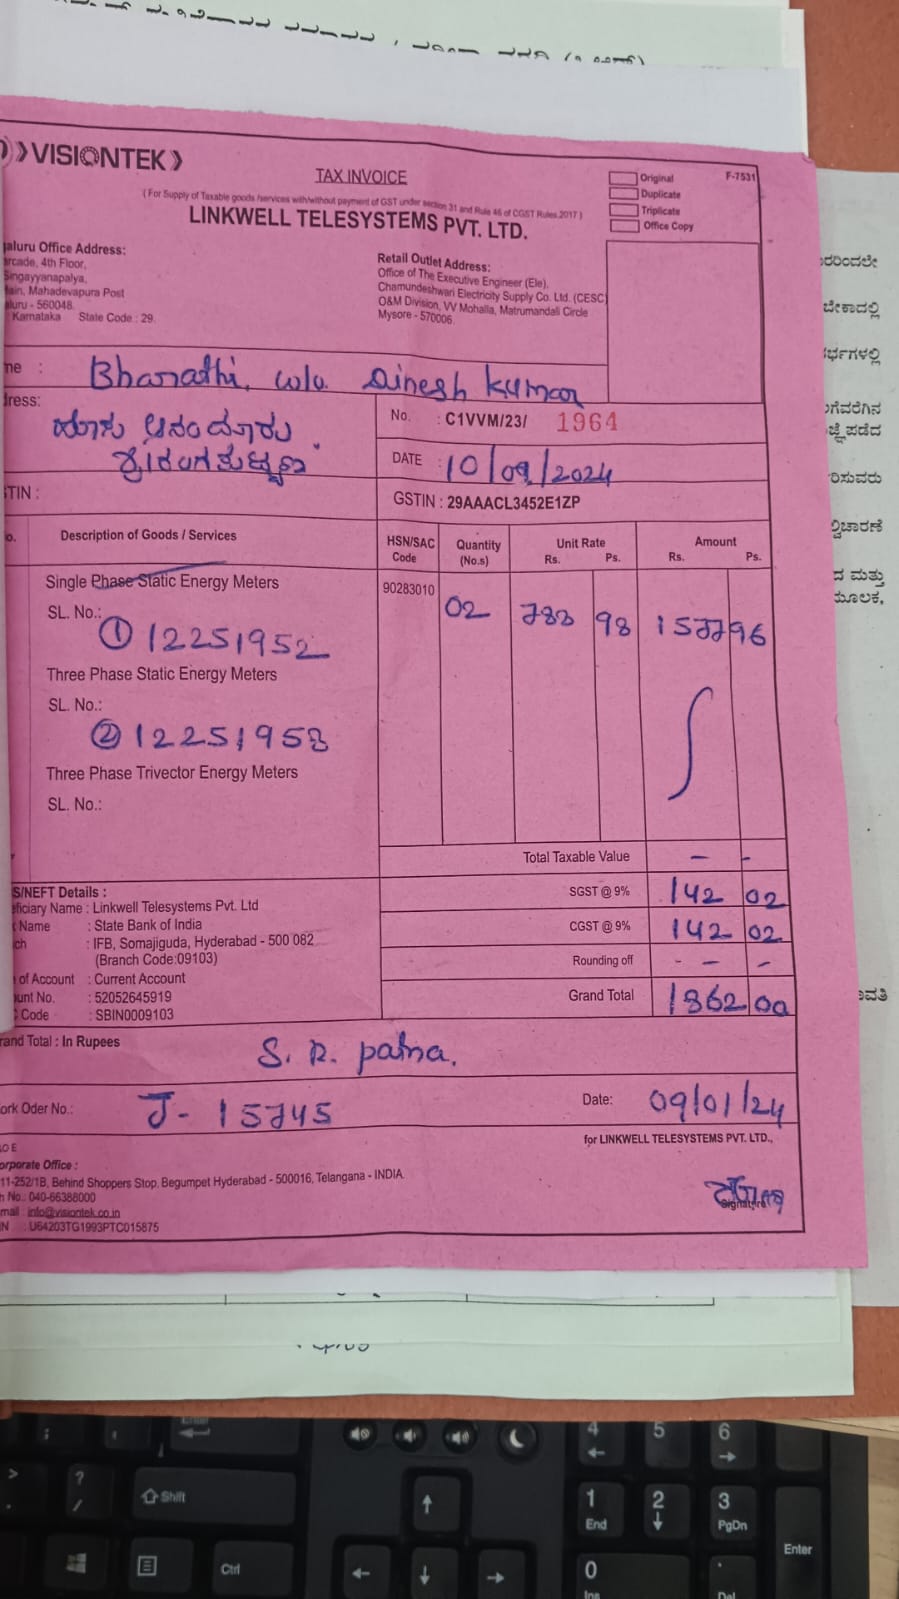 VISIONTEK
TAX INVOICE
( For Supply of Taxable goods /services with/without payment of GST under section 31 and Rule 46 of CGST Rules.2017 )
LINKWELL TELESYSTEMS PVT. LTD.
Original
Duplicate
Triplicate
Office Copy
F-7531
aluru Office Address:
arcade, 4th Floor,
Singayyanapalya,
ain, Mahadevapura Post
aluru - 560048.
Karnataka State Code : 29.
Retail Outlet Address:
Office of The Executive Engineer (Ele),
Chamundeshwari Electricity Supply Co. Ltd. (CESC)
O&M Division, VV Mohalla, Matrumandali Circle
Mysore - 570006.
me : Bharathi, w/o. Dinesh kumar
dress:
No. : C1VVM/23/ 1964
DATE : 10/09/2024
TIN :
GSTIN : 29AAACL3452E1ZP
o. Description of Goods / Services HSN/SAC Code Quantity (No.s) Unit Rate Rs. Ps. Amount Rs. Ps.
Single Phase Static Energy Meters 90283010 02 788 98 1577 96
SL. No.:
① 12251952
Three Phase Static Energy Meters
SL. No.:
② 12251953
Three Phase Trivector Energy Meters
SL. No.:
Total Taxable Value — -
SGST @ 9% 142 02
CGST @ 9% 142 02
Rounding off - — -
Grand Total 1862 00
S/NEFT Details :
eficiary Name : Linkwell Telesystems Pvt. Ltd
Name : State Bank of India
ch : IFB, Somajiguda, Hyderabad - 500 082
(Branch Code:09103)
of Account : Current Account
unt No. : 52052645919
Code : SBIN0009103
rand Total : In Rupees S. R. patna.
ork Oder No.: J- 15745 Date: 09/01/24
for LINKWELL TELESYSTEMS PVT. LTD.,
& O E
orporate Office :
11-252/1B, Behind Shoppers Stop, Begumpet Hyderabad - 500016, Telangana - INDIA.
h No.: 040-66388000
mail : info@visiontek.co.in
N : U64203TG1993PTC015875
Signature
ಬೇಕಾದಲ್ಲಿ
ದ ಮತ್ತು
ಮೂಲಕ,
Shift
Ctrl
Enter
4
5
6
1
End
2
3
PgDn
0
Ins
Del
Enter